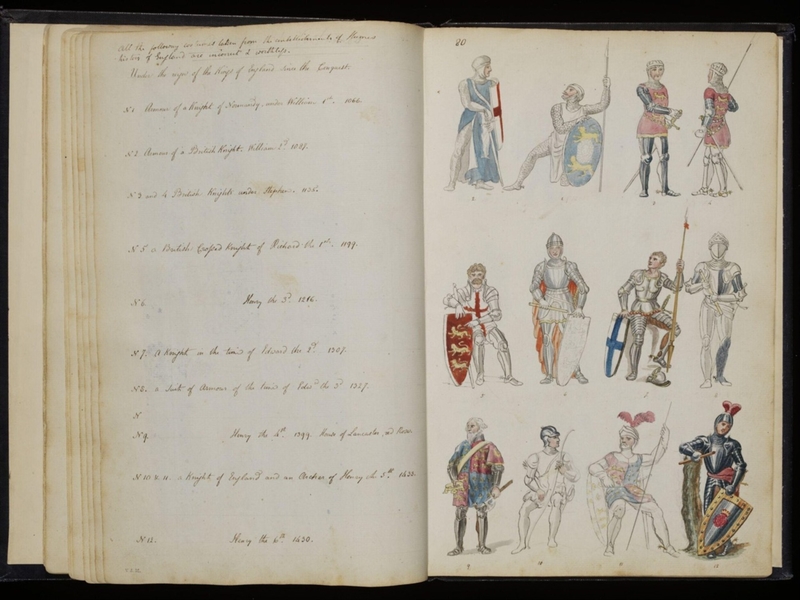 All the following are most taken from the embellishments of Humes
history of England are incorrect & worthless.
Under the reign of the Kings of England since the Conquest.
N. 1 Armour of a Knight of Normandy, under William 1st. 1066.
N. 2 Armour of a British Knight. William 2d. 1087.
N. 3 and 4 British Knights under Stephen. 1135.
N. 5. a British Crossed Knight of Richard the 1st. 1199.
N. 6. Henry the 3d. 1216.
N. 7. A Knight in the time of Edward the 2d. 1307.
N. 8. a Suit of Armour of the time of Edwd the 3d. 1327.
N
N. 9. Henry the 4th. 1399. House of Lancaster, red Rose.
N. 10. & 11. a Knight of England and an Archer of Henry the 5th. 1430.
N. 12. Henry the 6th. 1430.
20
3 4
5 6 7 8
9 10 11 12